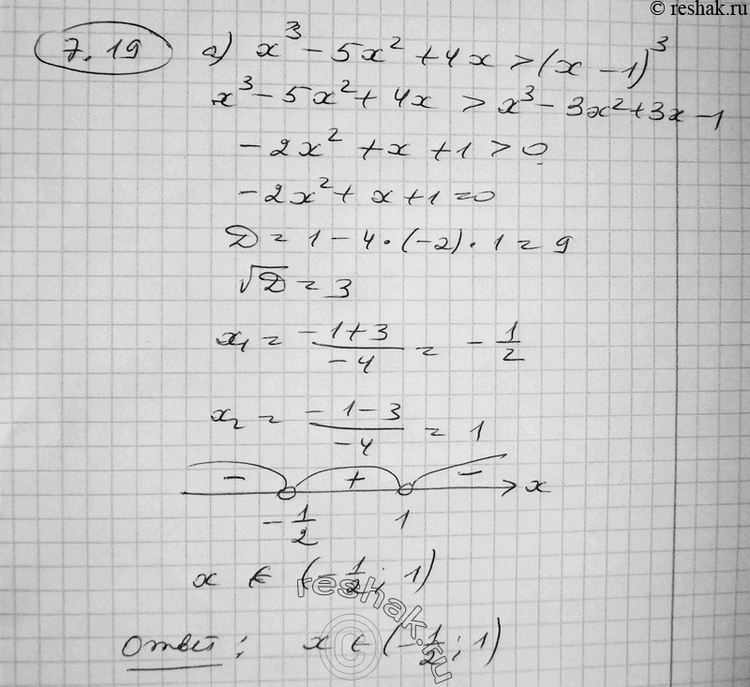 © reshak.ru
7.19 а) x³ - 5x² + 4x > (x - 1)³
x³ - 5x² + 4x > x³ - 3x² + 3x - 1
-2x² + x + 1 > 0
-2x² + x + 1 = 0
D = 1 - 4 · (-2) · 1 = 9
√D = 3
x₁ = (-1+3)/(-4) = -1/2
x₂ = (-1-3)/(-4) = 1
- + - x
-1/2 1
x ∈ (-1/2; 1)
Ответ: x ∈ (-1/2; 1)
reshak.ru
©